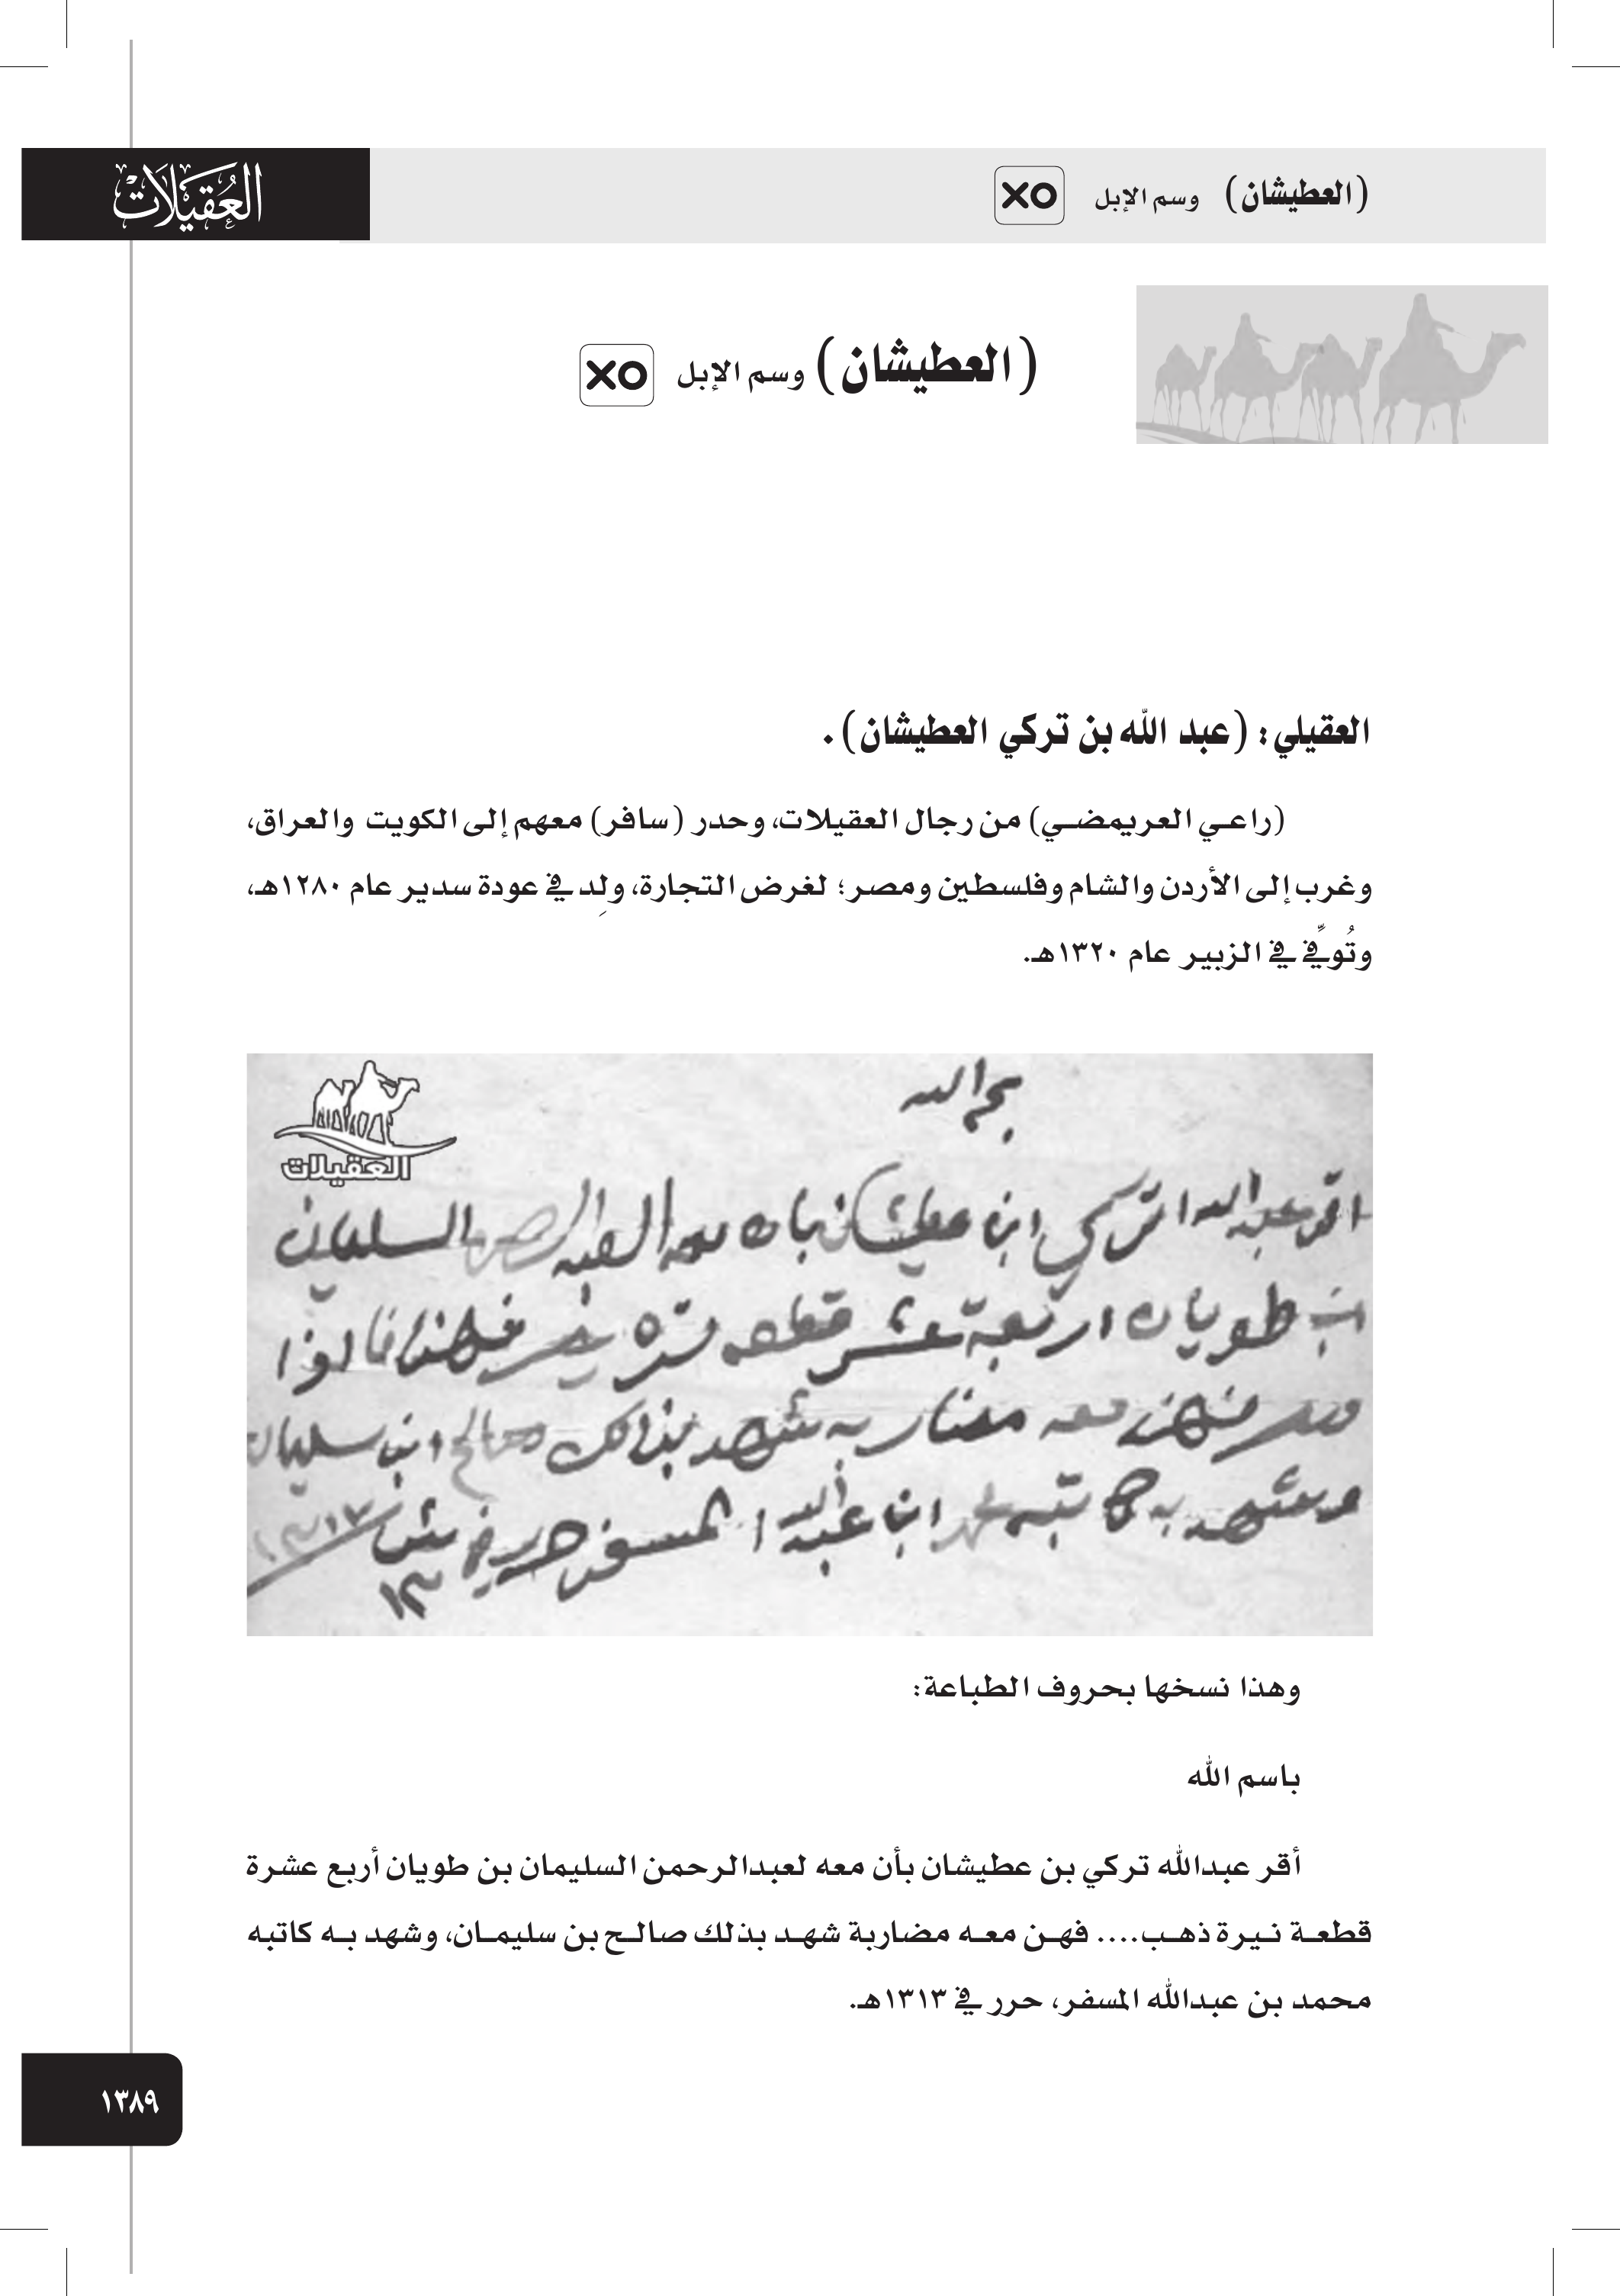 (العطيشان) وسم الإبل XO
العُقَيْلَات
(العطيشان) وسم الإبل XO
العقيلي: (عبد الله بن تركي العطيشان).
(راعي العريمضي) من رجال العقيلات، وحدر (سافر) معهم إلى الكويت والعراق،
وغرب إلى الأردن والشام وفلسطين ومصر؛ لغرض التجارة، ولِد في عودة سدير عام ١٢٨٠هـ،
وتُوفِّي في الزبير عام ١٣٢٠هـ.
العقيلات
بسم الله
اقر عبدالله تركي ابن عطيشان بان معه العبد الرحمن السليمان
ابن طويان اربعة عشر قطعه نيره
منهن معه مضاربه شهد بذالك صالح ابن سليمان
وشهد به كاتبه محمد ابن عبدالله المسفر حرر في
١٣١٣
وهذا نسخها بحروف الطباعة:
باسم الله
أقر عبدالله تركي بن عطيشان بأن معه لعبدالرحمن السليمان بن طويان أربع عشرة
قطعة نيرة ذهب.... فهن معه مضاربة شهد بذلك صالح بن سليمان، وشهد به كاتبه
محمد بن عبدالله المسفر، حرر في ١٣١٣هـ.
١٣٨٩